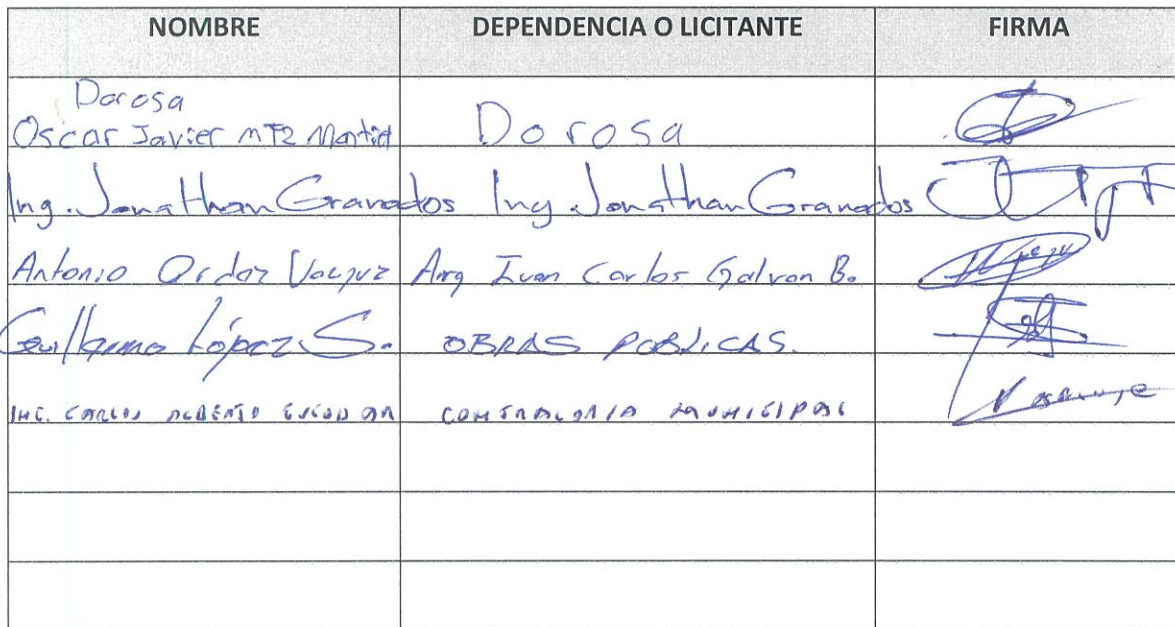 NOMBRE DEPENDENCIA O LICITANTE FIRMA
Dorosa
Oscar Javier MTZ Montiel Dorosa
Ing. Jonathan Granados Ing. Jonathan Granados
Antonio Ordaz Vazquz Arq Ivan Carlos Galvan B.
Guillermo López S. OBRAS PUBLICAS.
ING. CARLOS ALBERTO CONTRALORIA MUNICIPAL